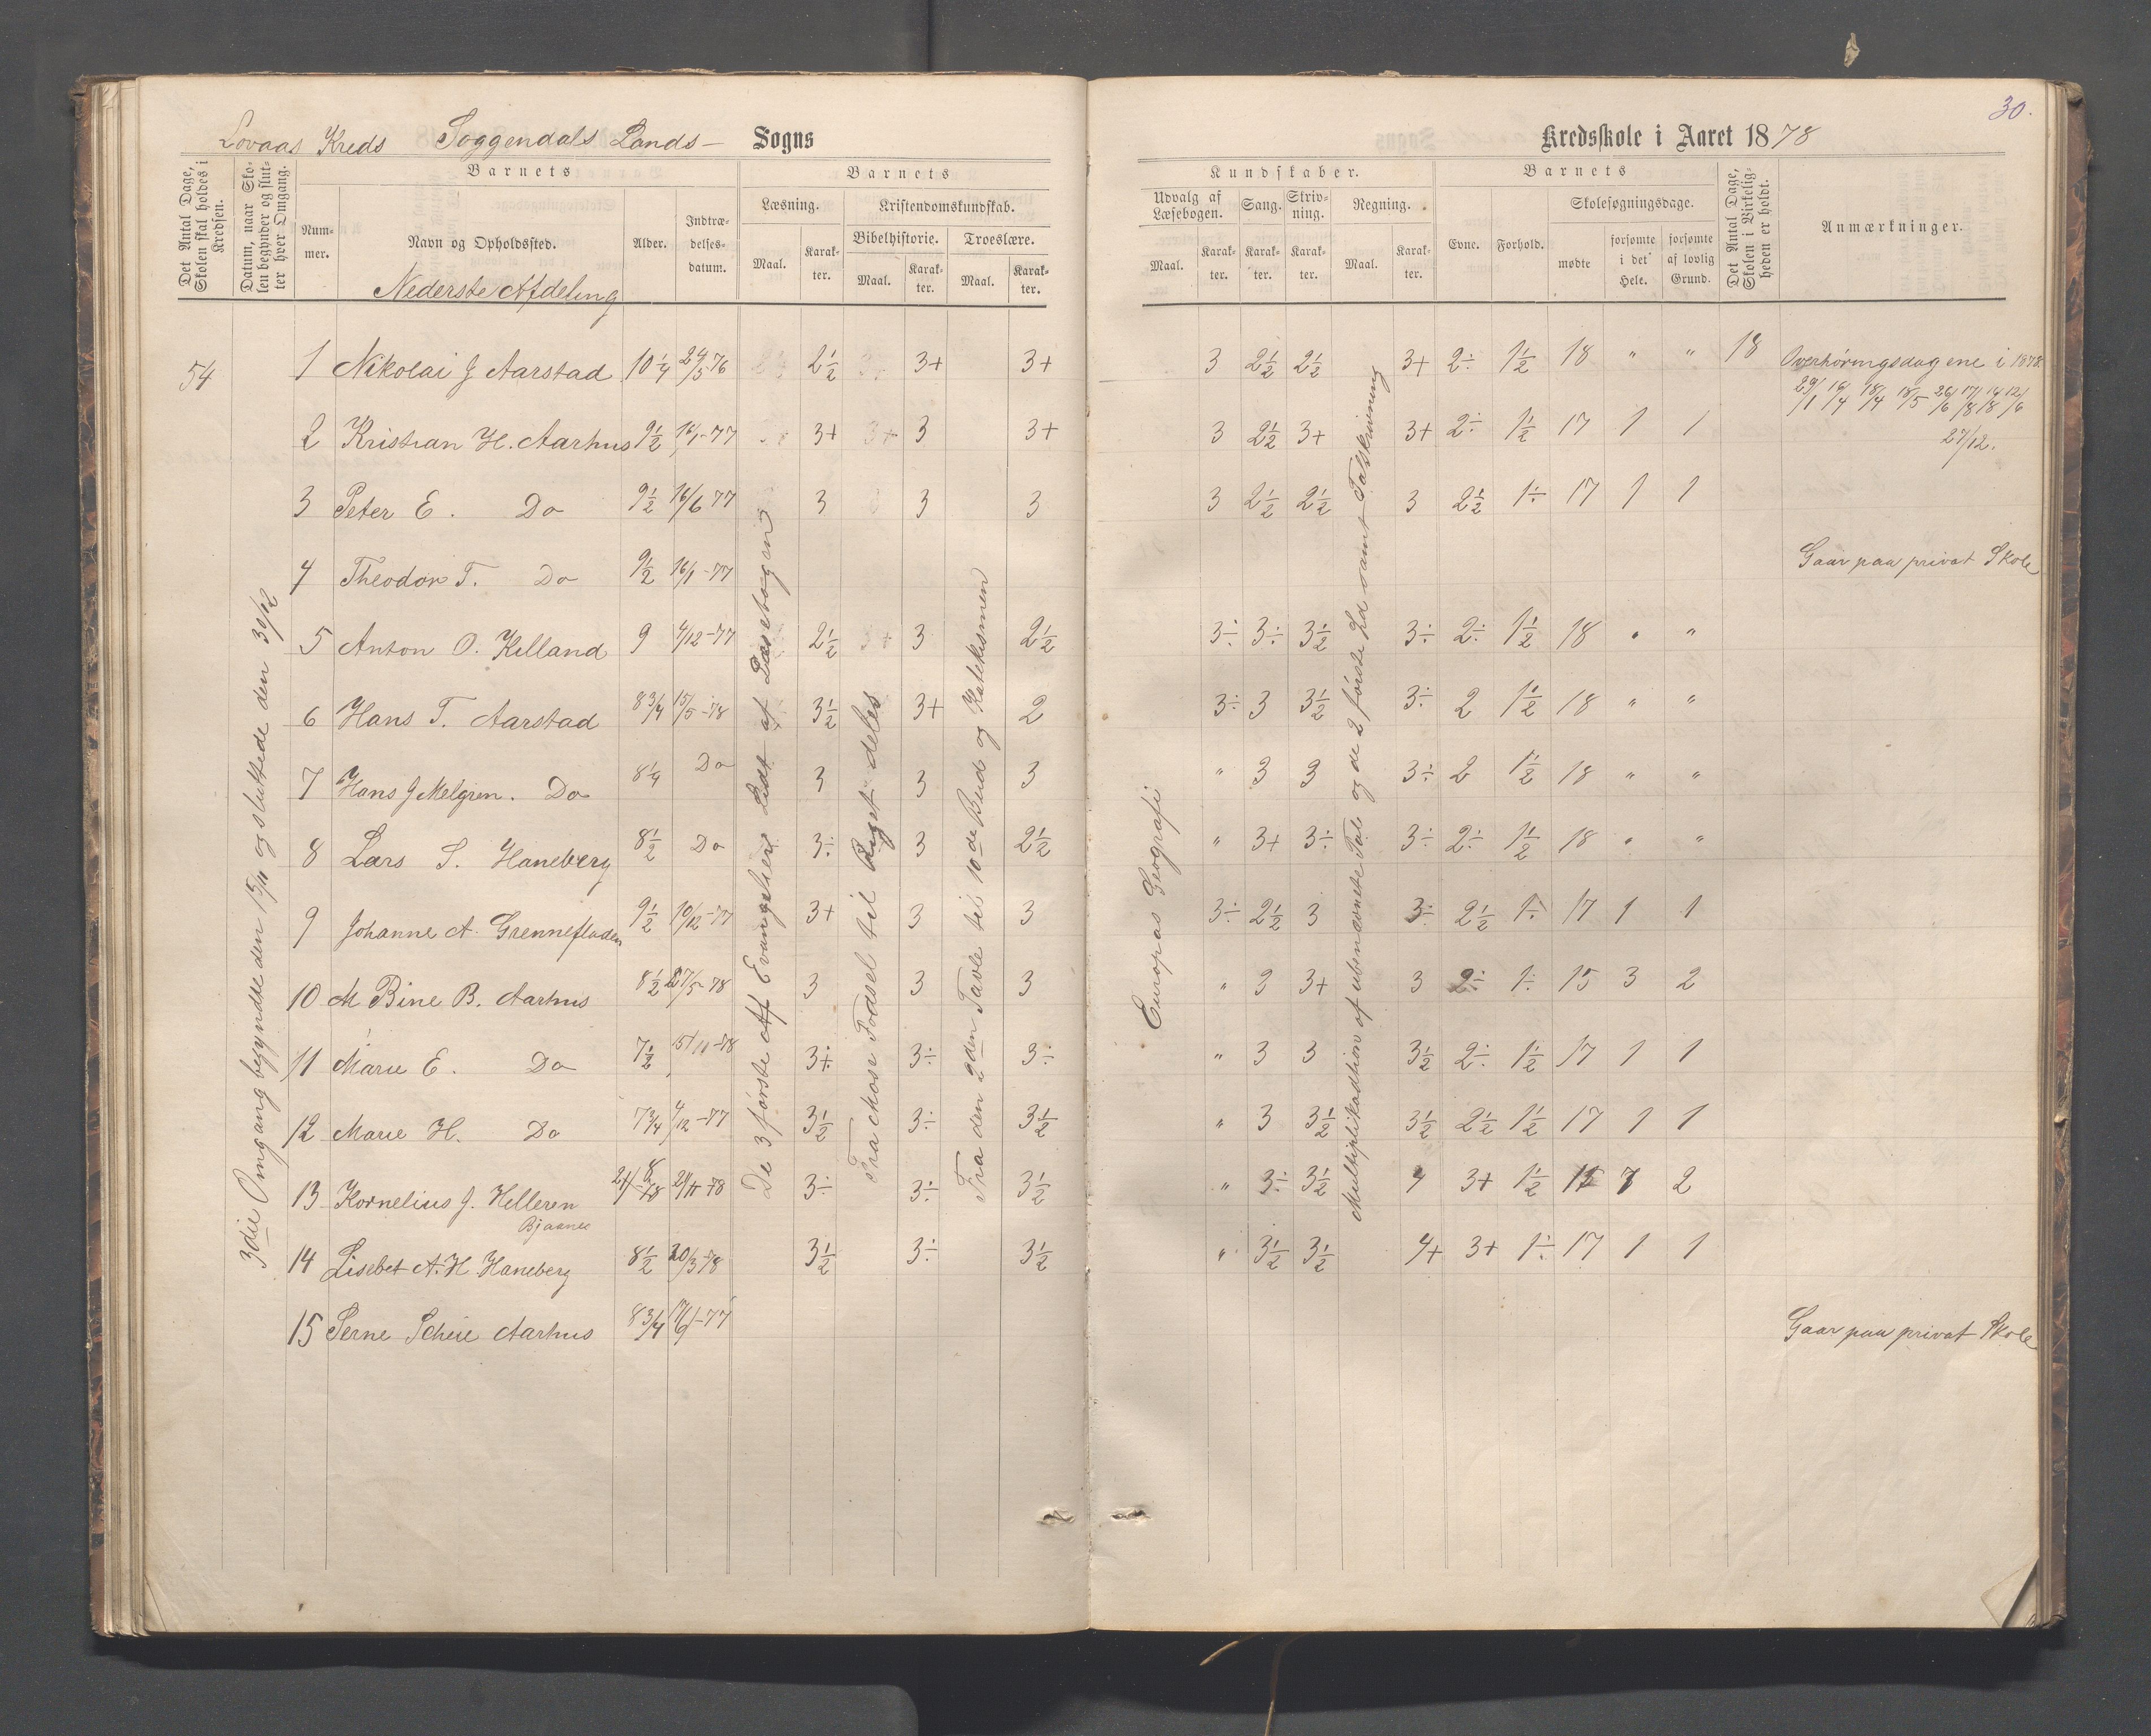 30.
Lovaas Kreds Soggendals Lands- Sogns Kredsskole i Aaret 1878
Det Antal Dage, Skolen skal holdes i Kredsen.
Datum, naar Skolen begynder og slutter hver Omgang.
Barnets
Nummer.
Navn og Opholdssted.
Alder.
Indtrædelsesdatum.
Barnets Kundskaber.
Læsning.
Kristendomskundskab.
Bibelhistorie. Troeslære.
Maal. Karakter. Maal. Karakter. Maal. Karakter.
Udvalg af Læsebogen. Sang. Skrivning. Regning.
Maal. Karakter. Karakter. Karakter. Maal. Karakter.
Barnets
Evne. Forhold. Skolesøgningsdage.
mødte forsømte i det Hele. forsømte af lovlig Grund.
Det Antal Dage, Skolen i Virkeligheden er holdt.
Anmærkninger.
Nederste Afdeling
54
3die Omgang begyndte den 15/11 og sluttede den 30/12
De 3 første Af Evangeliene Lidt af Læsebogen
Fra Mose Fødsel til Riget deles
Fra den 2den Tavle til 10de Bud og Katekismen
Europas Geografi
Multiplikadtion af ubenævnte Tal og de 2 første Ld samt Talskrivning
1 Nikolai J Aarstad 10 1/4 24/5 76 2 1/2 3+ 3+ 3 2 1/2 2 1/2 3+ 2÷ 1 1/2 18 " " 18 Overhøringsdagene i 1878.
29/1 16/4 18/4 18/5 26/6 17/8 14/8 12/6
27/12.
2 Kristian H. Aarhus 9 1/2 16/1-77 3+ 3 3+ 3 2 1/2 3+ 3+ 2÷ 1 1/2 17 1 1
3 Peter E. Do 9 1/2 16/6 77 3 3 3 3 2 1/2 2 1/2 3 2 1/2 1÷ 17 1 1
4 Theodor T. Do 9 1/2 16/1-77 Gaar paa privat Skole
5 Anton O. Kelland 9 4/12-77 2 1/2 3 2 1/2 3÷ 3÷ 3 1/2 3÷ 2÷ 1 1/2 18 " "
6 Hans T. Aarstad 8 3/4 15/5-78 3 1/2 3+ 2 3÷ 3 3 1/2 3÷ 2 1 1/2 18 " "
7 Hans J Melgren. Do 8 1/4 Do 3 3 3 " 3 3 3÷ 2 1 1/2 18 " "
8 Lars S. Haneberg 8 1/2 Do 3÷ 3 2 1/2 " 3+ 3÷ 3÷ 2÷ 1 1/2 18 " "
9 Johanne A. Grennefladen 9 1/2 10/12-77 3+ 3 3 3÷ 2 1/2 3 3÷ 2 1/2 1÷ 17 1 1
10 M Bine B. Aarhus 8 1/2 27/5-78 3 3 3 " 3 3+ 3 2÷ 1÷ 15 3 2
11 Marie E. Do 7 1/2 15/11-78 3+ 3÷ 3÷ " 3 3 3 1/2 2÷ 1 1/2 17 1 1
12 Marie H. Do 7 3/4 4/12-77 3 1/2 3÷ 3 1/2 " 3 3 1/2 3 1/2 2 1/2 1 1/2 17 1 1
13 Kornelius J. Helleren 21/11-78 3÷ 3÷ 3 1/2 " 3÷ 3 1/2 4 3+ 1 1/2 2
Bjaanes
14 Lisebet A. H. Haneberg 8 1/2 20/3-78 3 1/2 3÷ 3 1/2 " 3 1/2 3 1/2 4+ 3+ 1÷ 17 1 1
15 Serne Scheie Aarhus 8 3/4 17/6-77 Gaar paa privat Skole